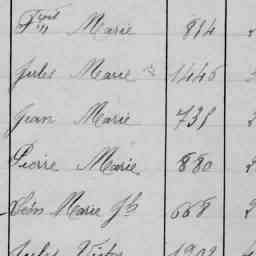 Marie 814 2
Jules Marie 1446
Jean Marie 731 2
Pierre Marie 880 2
Léon Marie Jh 668 2
Jules Victor 1902